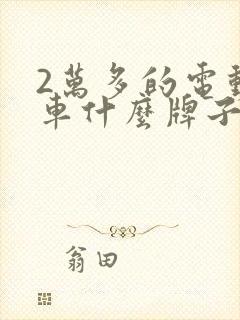 2萬多的電動
車什麼牌子
翁田